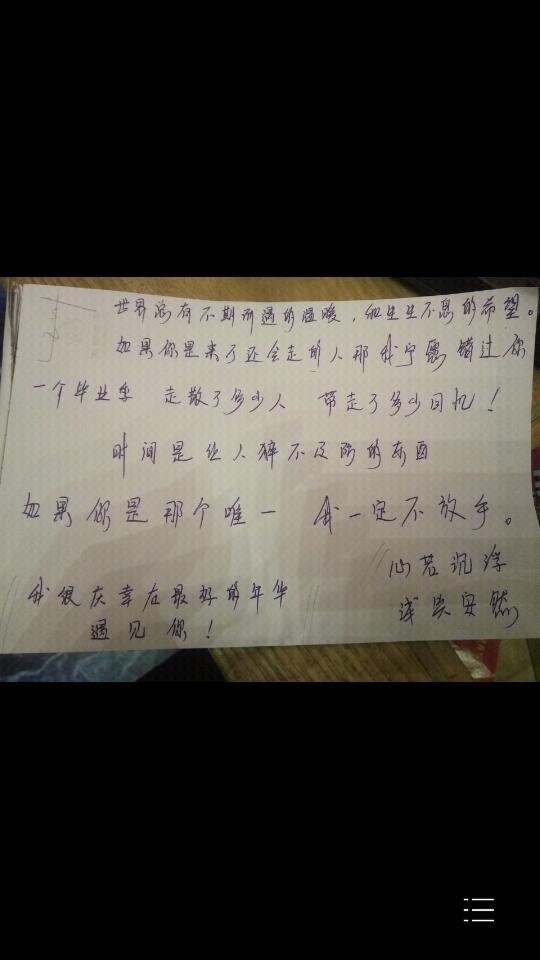 世界总有不期而遇的温暖，和生生不息的希望。
如果你是来了还会走的人那我宁愿错过你
一个毕业季 走散了多少人 带走了多少回忆！
时间是让人猝不及防的东西
如果你是那个唯一 我一定不放手。
心若沉浮
浅笑安然
我很庆幸在最好的年华
遇见你！